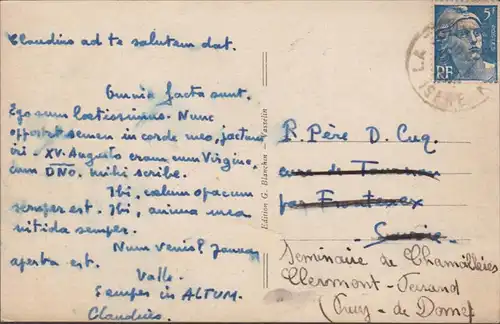 Claudius ad te salutem dat.
Omnia facta sunt.
Ego sum laetissimus. Nunc
oportet semen in corde meo, jactum
iri - XV. Augusto eram cum Virgine
cum DNO. mihi scribe.
Ibi, coelum opacum
semper est. Ibi, anima mea
nitida semper.
Num venis? Janua
aperta est.
Vale.
Semper in ALTUM.
Claudius.
Edition G. Blanchin
5F
POSTES
RF
LA
ISERE
R. Père D. Cuq.
curé de Tournon
par Frontenex
Savoie
Seminaire de Chamalières
Clermont-Ferrand
(Puy-de-Dome)